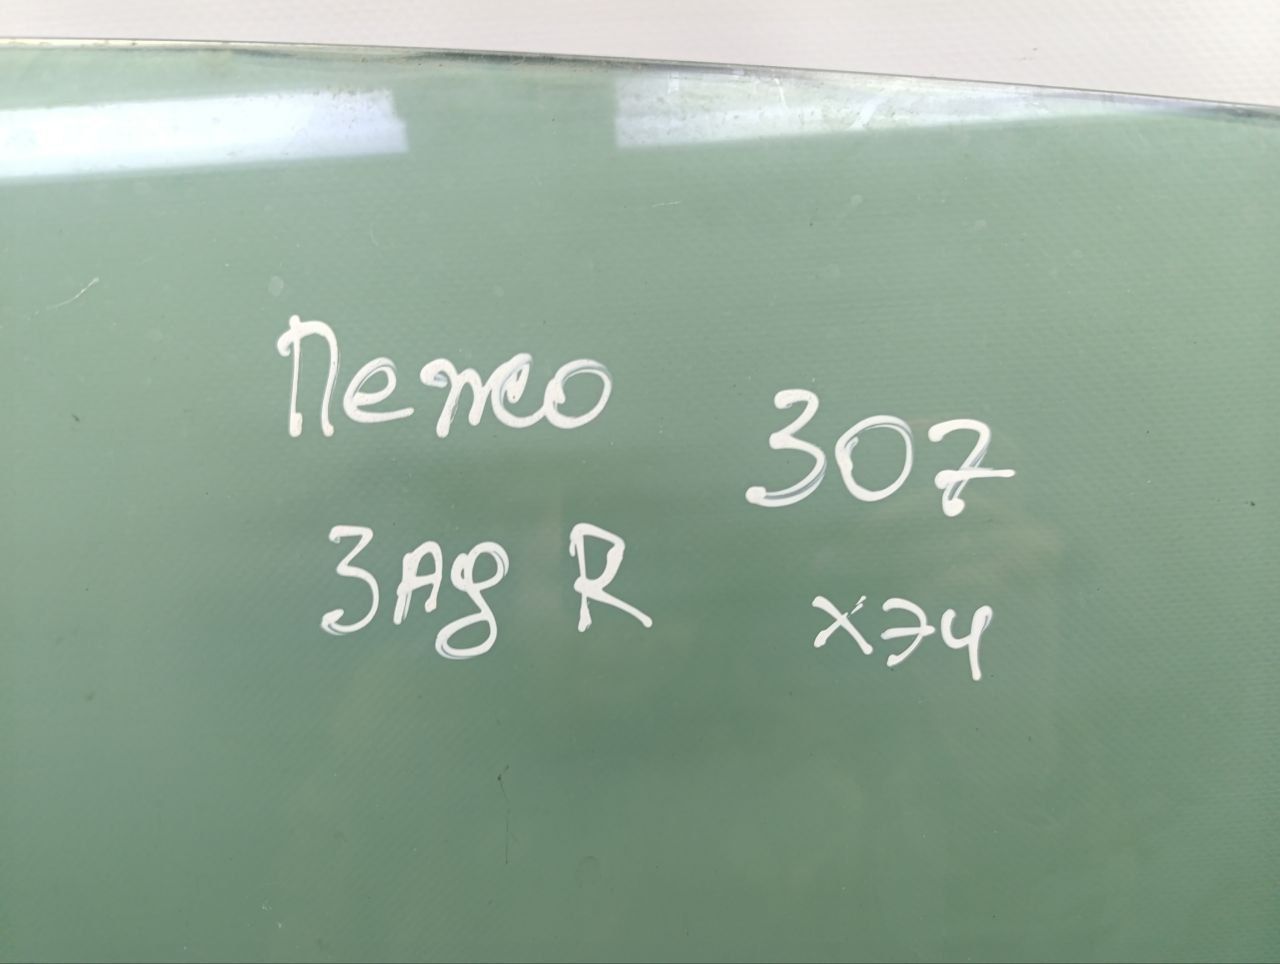 Пежо 307
Зад R хэч